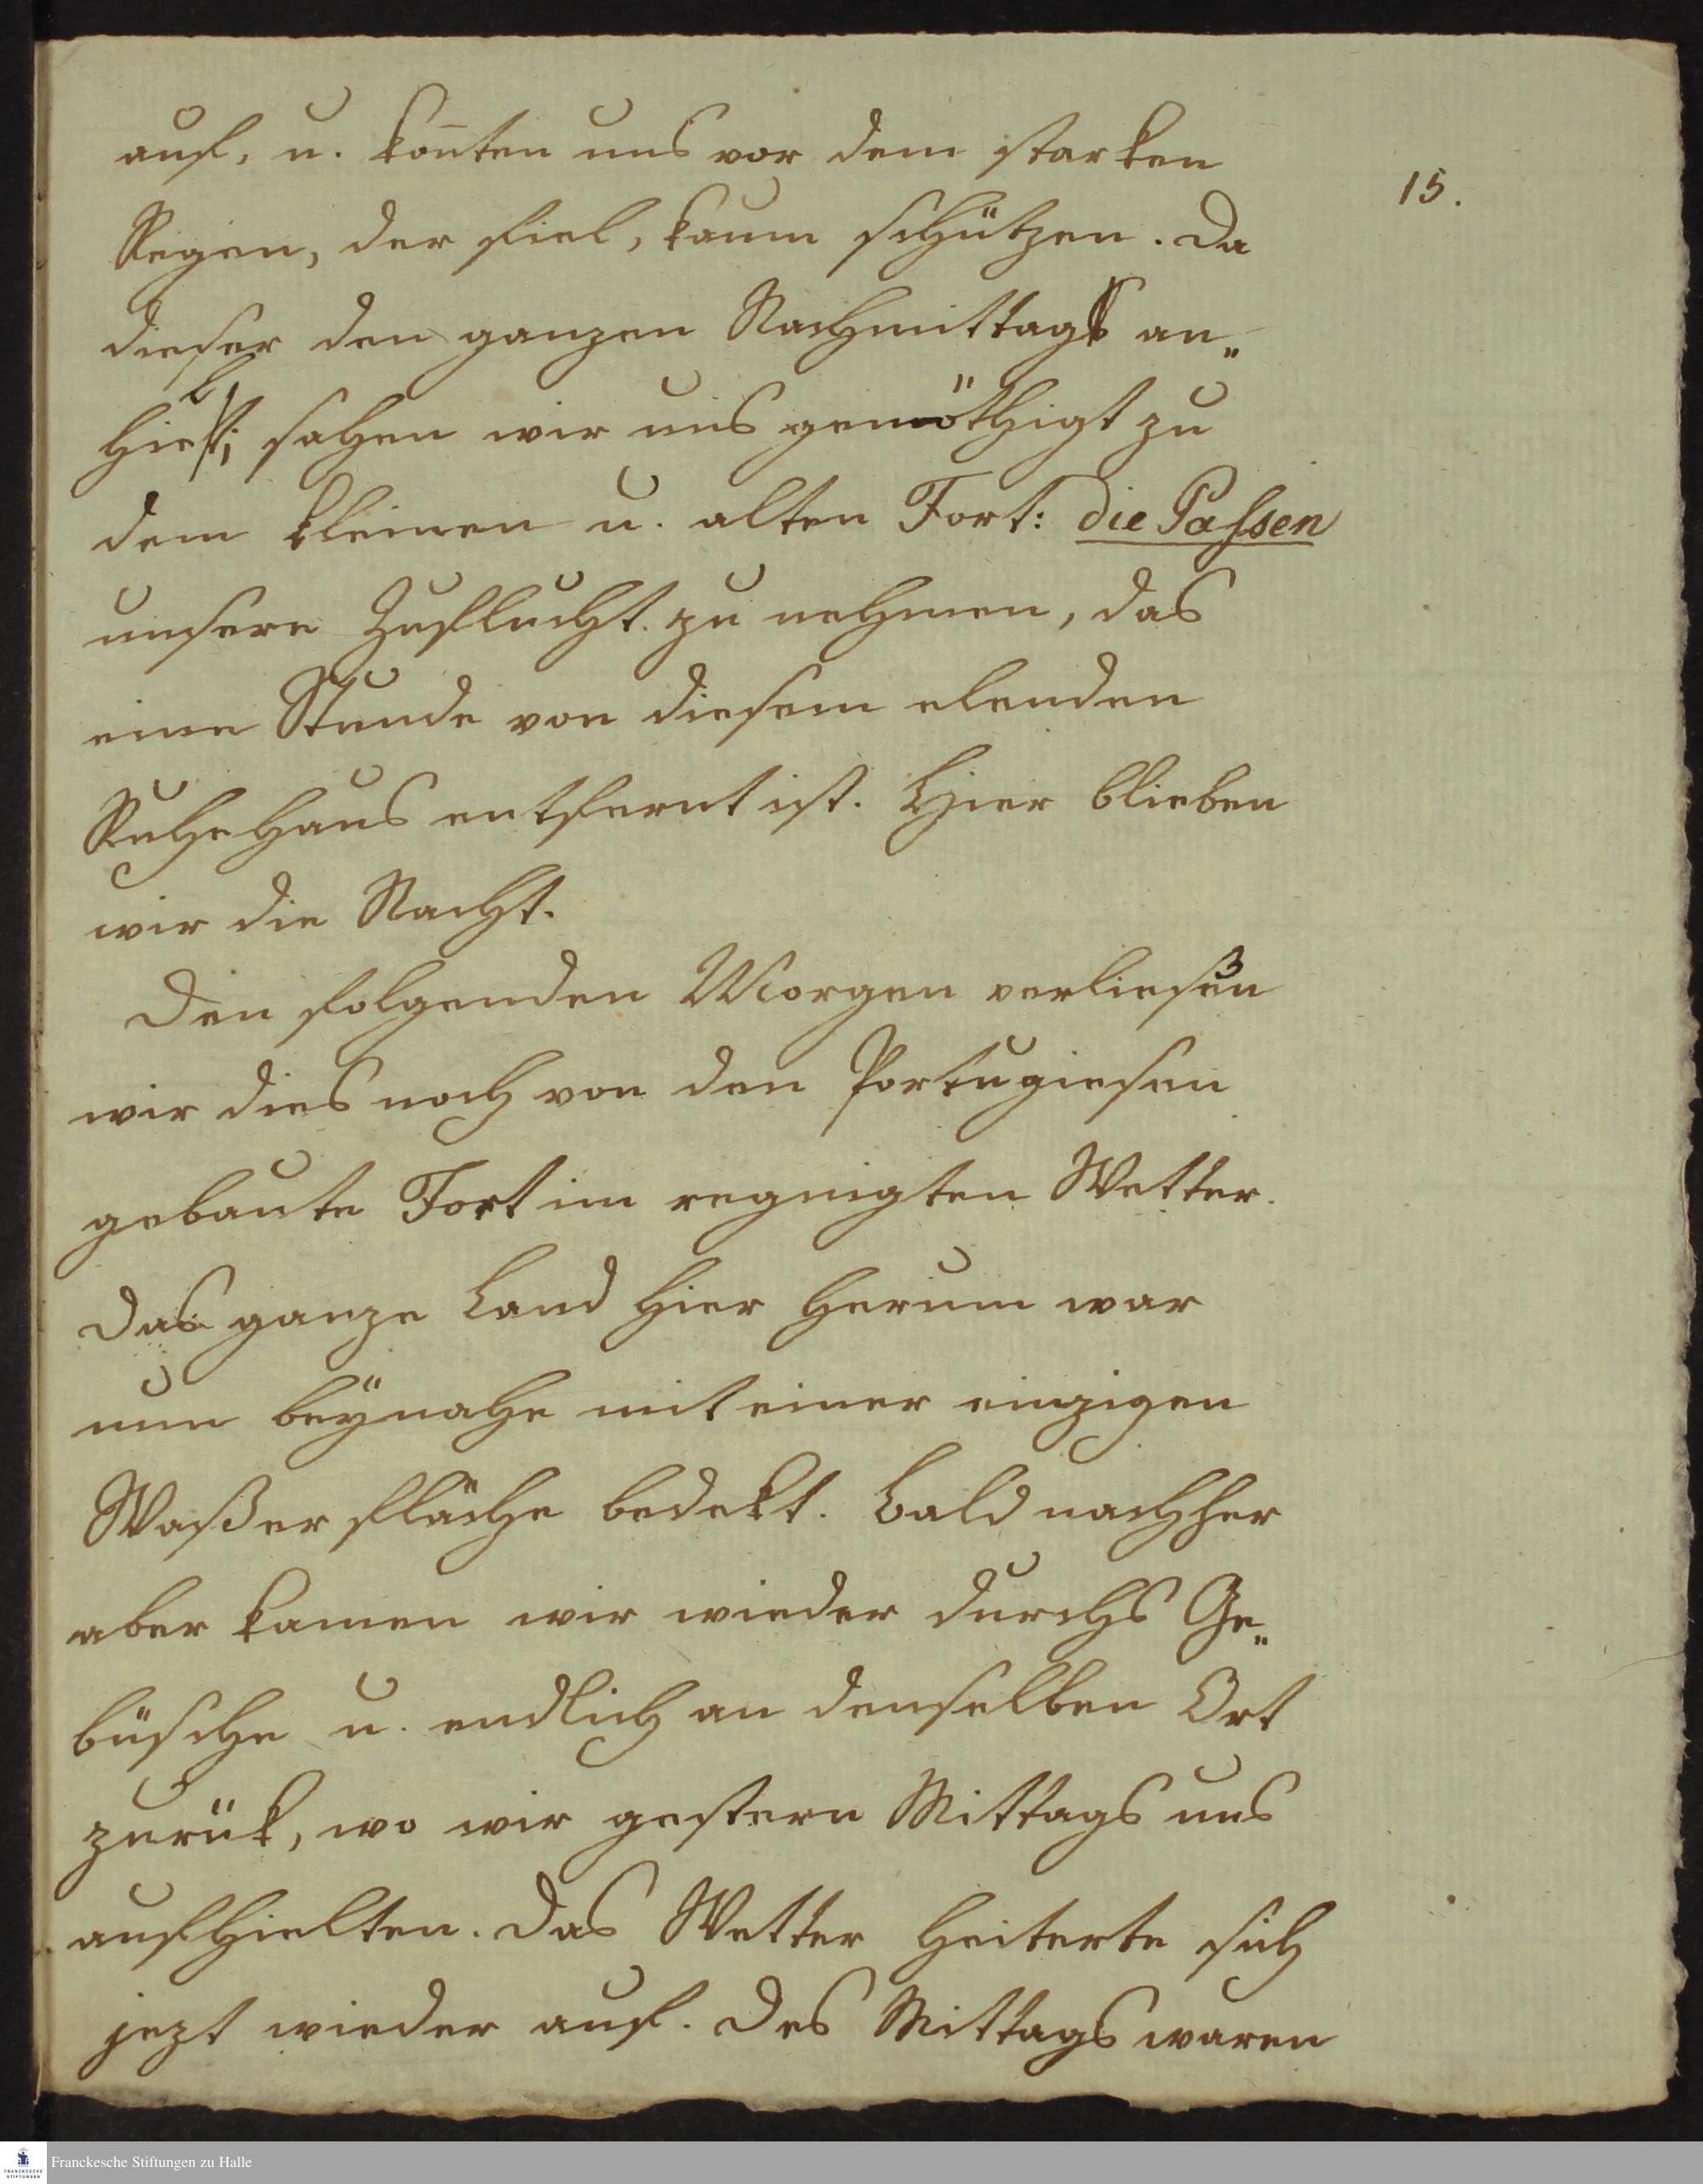 auf, u. kon̄ten uns vor dem starken
15.
Regen, der fiel, kaum schützen. Da
dieser den ganzen Nachmittag an„
hielt; sahen wir uns genöthigt zu
dem kleinen u. alten Fort: die Passen
unsere Zuflucht zu nehmen, das
eine Stunde von diesem elenden
Ruhehaus entfernt ist. Hier blieben
wir die Nacht.
Den folgenden Morgen verließen
wir dies noch von den Portugiesen
gebaute Fort im regnigten Wetter.
Das ganze Land hier herum war
nun beÿnahe mit einer einzigen
Waßerfläche bedekt. Bald nachher
aber kamen wir wieder durchs Ge„
büsche u. endlich an denselben Ort
zurük, wo wir gestern Mittags uns
aufhielten. Das Wetter heiterte sich
jezt wieder auf. Des Mittags waren
FRANCKESCHE STIFTUNGEN
Franckesche Stiftungen zu Halle